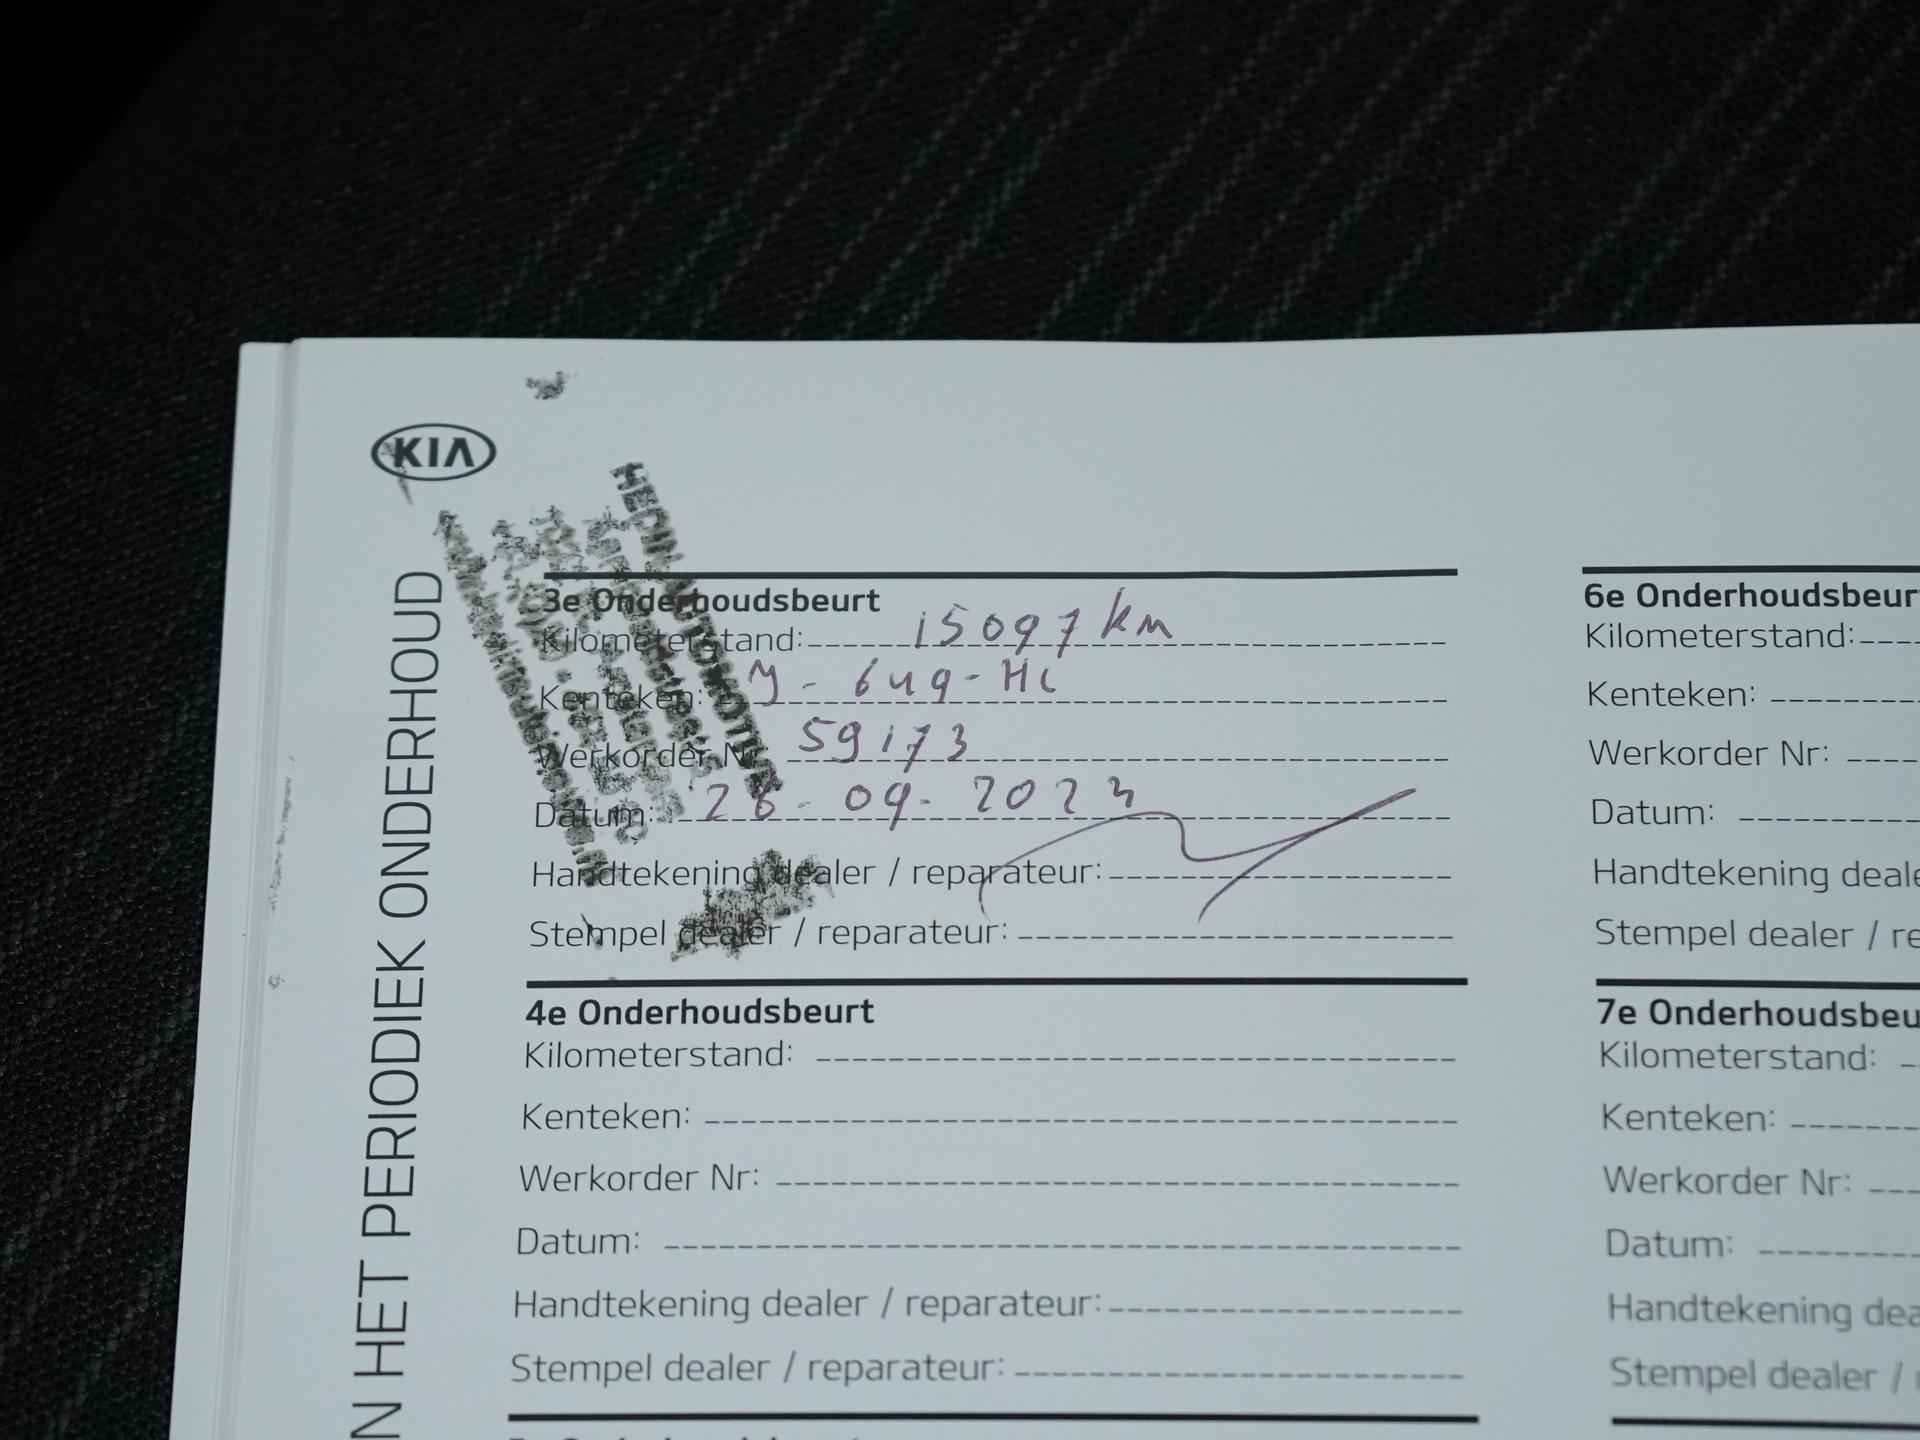 KIA
N HET PERIODIEK ONDERHOUD
3e Onderhoudsbeurt
Kilometerstand: 15097 km
Kenteken:
Werkorder Nr: 59173
Datum: 28-09-2023
Handtekening dealer / reparateur:
Stempel dealer / reparateur:
4e Onderhoudsbeurt
Kilometerstand:
Kenteken:
Werkorder Nr:
Datum:
Handtekening dealer / reparateur:
Stempel dealer / reparateur:
6e Onderhoudsbeur
Kilometerstand:
Kenteken:
Werkorder Nr:
Datum:
Handtekening deale
Stempel dealer / re
7e Onderhoudsbeu
Kilometerstand:
Kenteken:
Werkorder Nr:
Datum:
Handtekening dea
Stempel dealer /